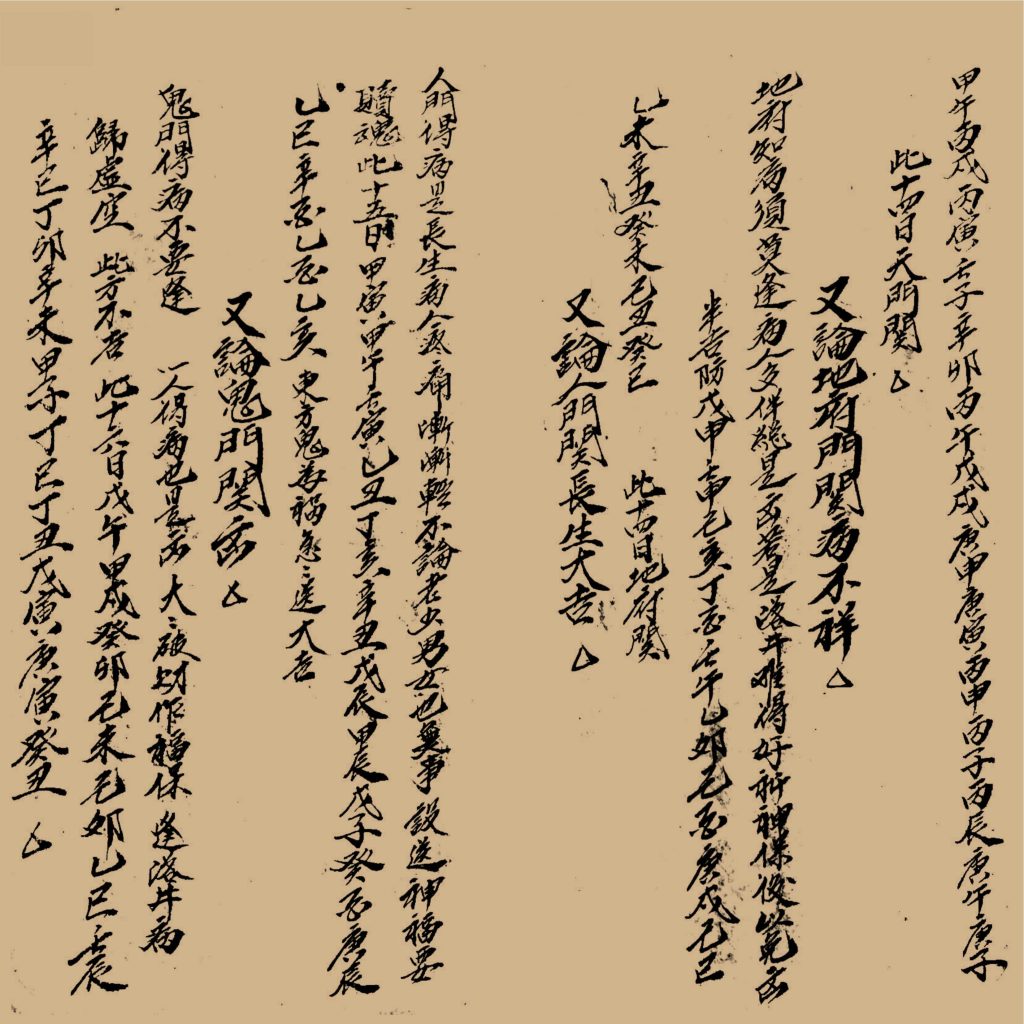 甲午丙戌丙寅壬子辛卯丙午戊戌庚申庚寅丙申丙子丙辰庚午庚子
此十四日天門関
又論地府門関病不祥
地府知病須莫逢病人交伴能是凶若是落井难得好祈神保後免凶
半吉防戊申壬申己亥丁酉壬午乙卯己酉庚戌己巳
乙未辛丑癸未己丑癸巳 此十四日地府関
又論人門関長生大吉
人門得病是長生病人疼痛漸漸輕不論老少男女也無事設送神福要
贖魂此十五日甲寅甲午壬寅乙丑丁亥辛丑戊辰甲辰戊子癸酉庚辰
乙巳辛酉乙酉乙亥東方鬼為禍急急送大吉
又論鬼門関凶
鬼門得病不要逢 人得病也是凶大大破財作福保逢落井病
歸虛空 此方不吉 此十六日戊午甲戌癸卯己未己卯乙巳壬辰
辛巳丁卯辛未甲子丁巳丁丑戊寅庚寅癸丑